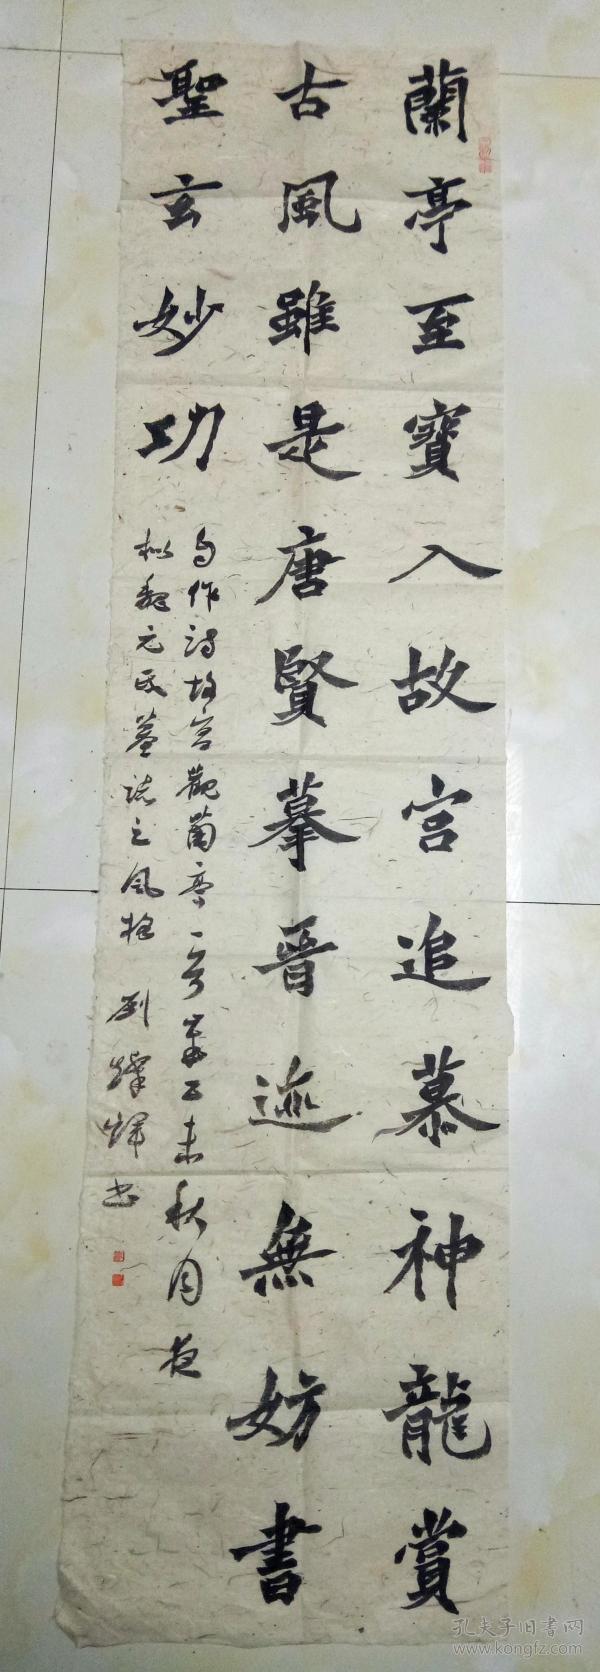 蘭亭至寶入故宫追慕神龍賞
古風雖是唐賢摹晉迹無妨書
聖玄妙功
自作詩故宫觀蘭亭一首歲乙未秋月夜
拟魏元氏墓誌之風格 劉 輝书
孔夫子旧书网
www.kongfz.com